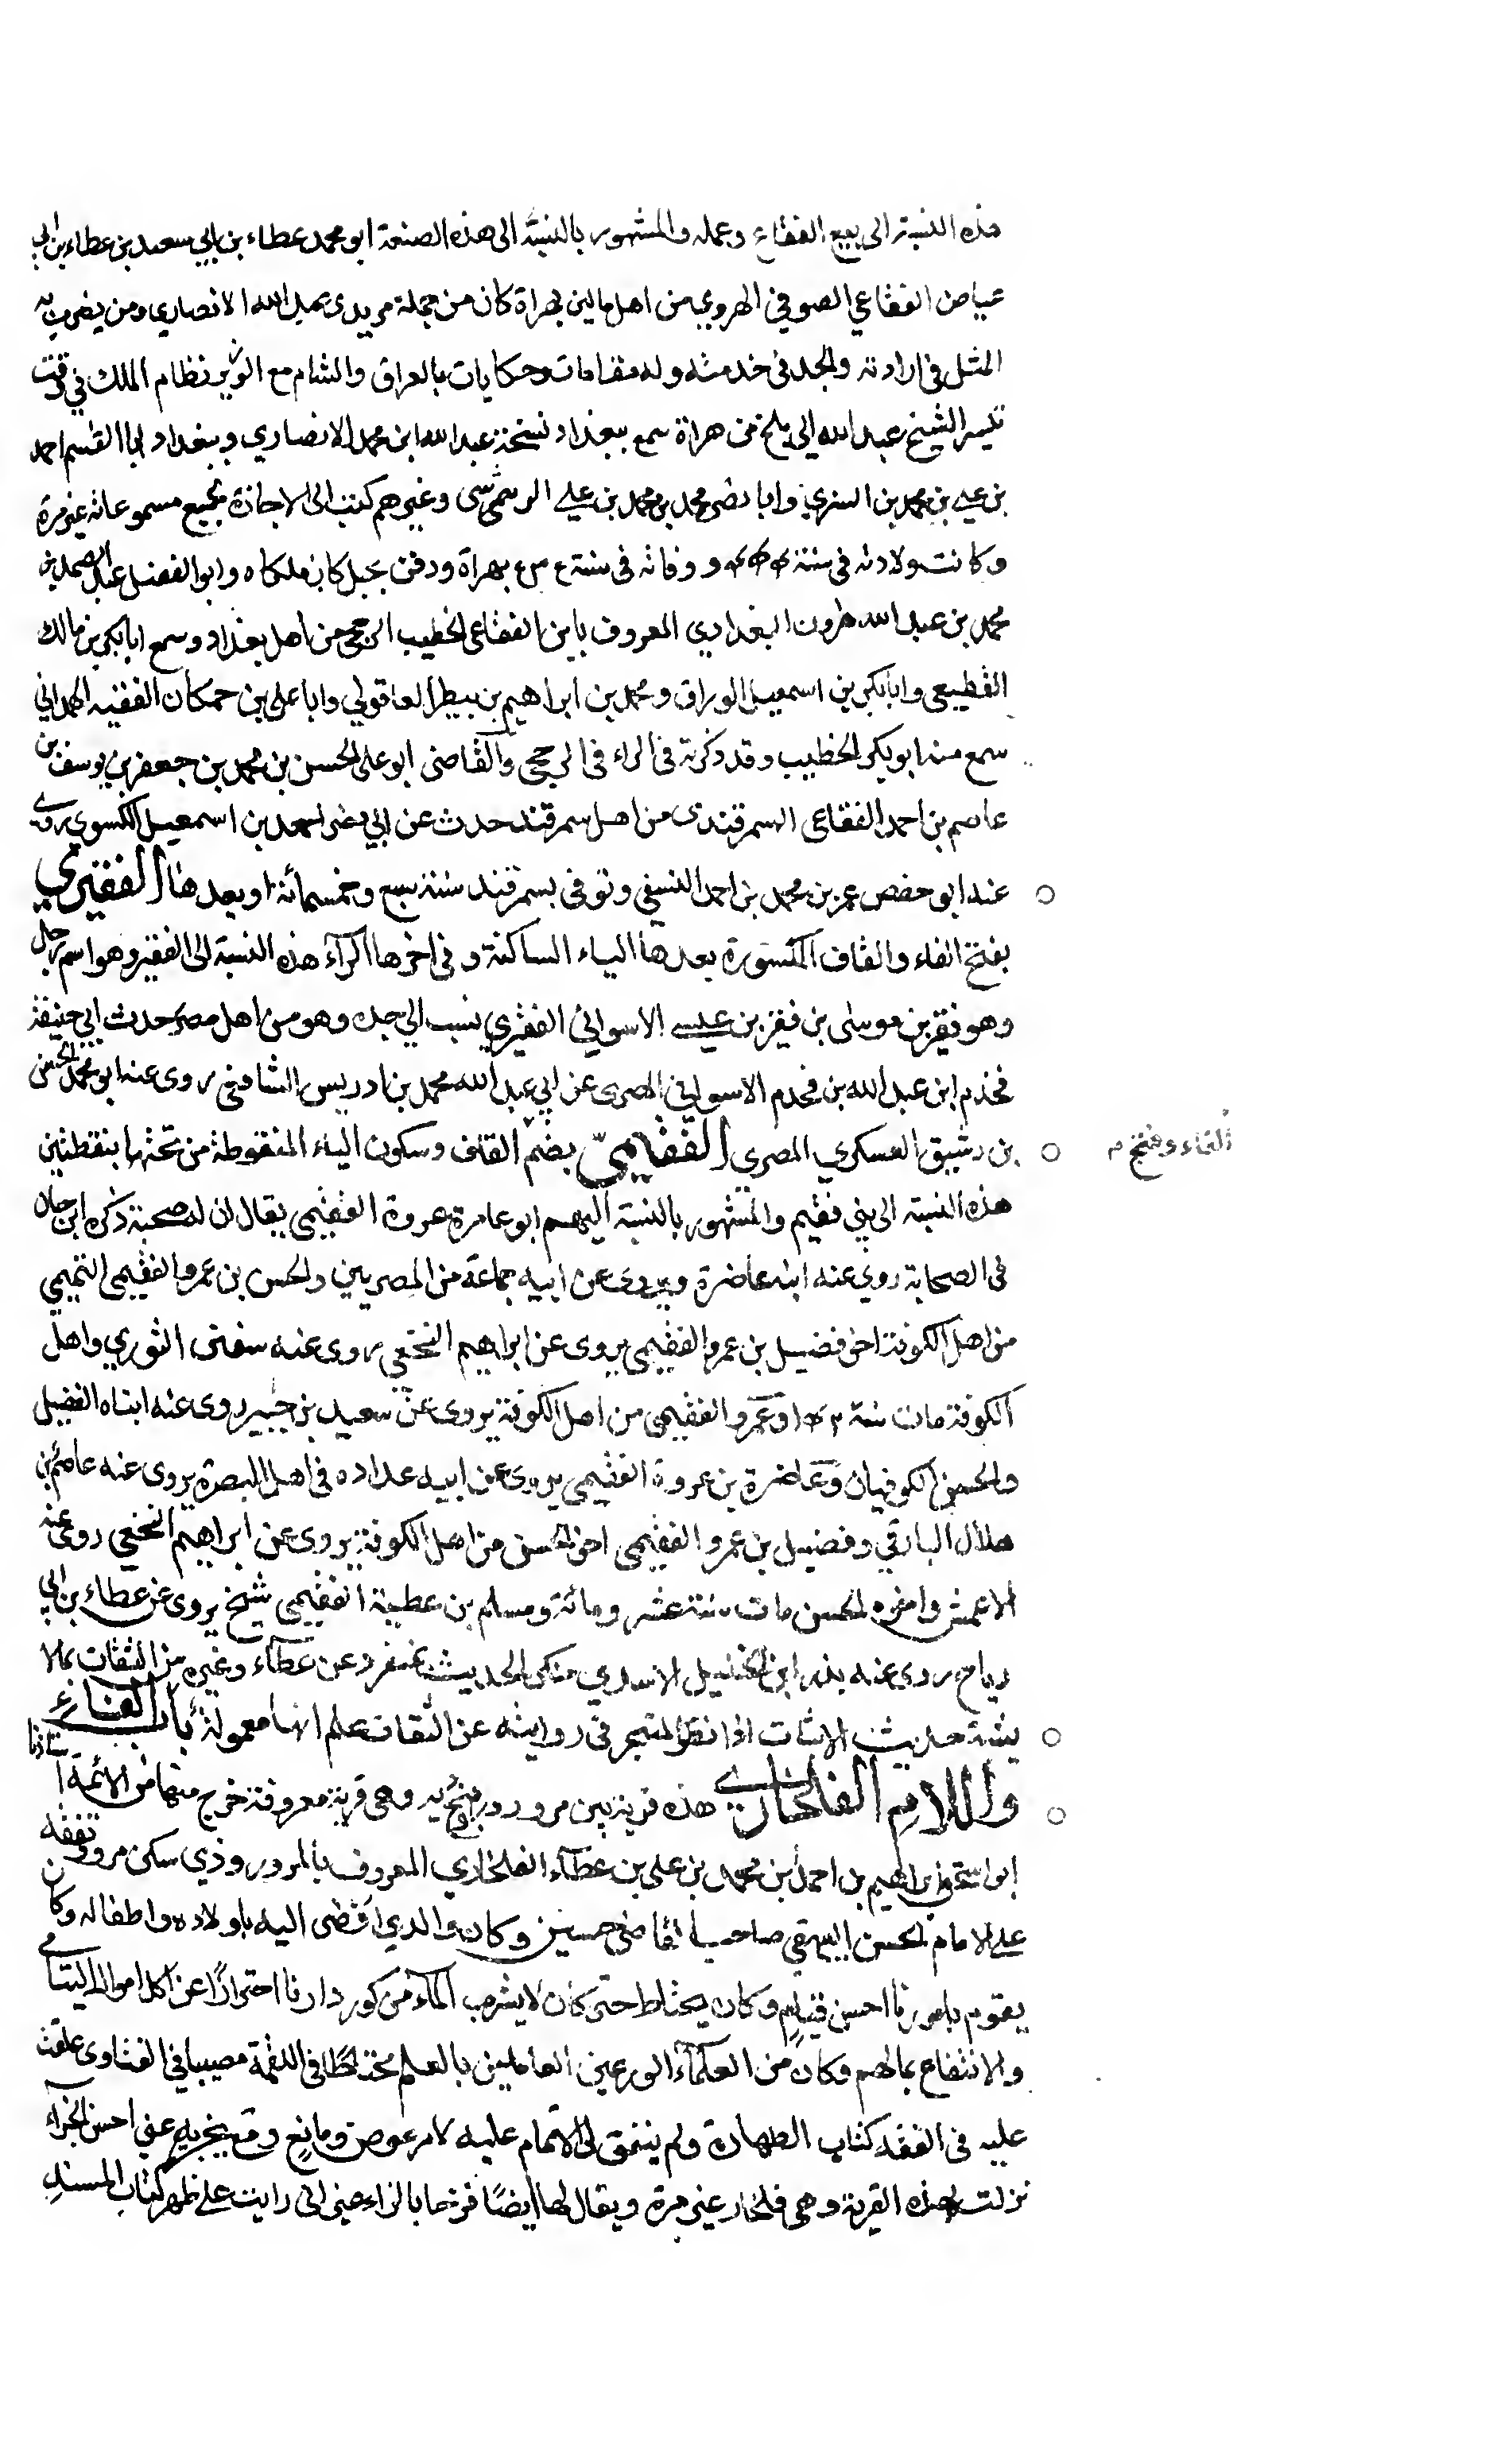 هذه النسبة الى بيع الفقاع وعمله والمشهور بالنسبة الى هذه الصنعة ابو محمد عطاء بن ابي سعيد بن عطاء بن ابي
عياض الفقاعي الصوفي الهروي من اهل مالين بهراة كان من جملة مريدى عبد الله الانصاري ومن يضرب به
المثل في ارادته والجد في خدمته وله مقامات وحكايات بالعراق والشام مع الوزير نظام الملك في وقت
تيسير الشيخ عبد الله الى بلخ من هراة سمع ببغداد نسخة عبد الله ابن محمد الانصاري وببغداد ابا القسم احمد
بن علي بن محمد بن السري وابا نصر محمد بن محمد بن علي وغيرهم كتب الى الاجازة بجميع مسموعاته غير مرة
وكانت ولادته في سنة ووفاته في سنة بهراة ودفن بجبل كازيلكاه وابو الفضل عبد الصمد بن
محمد بن عبد الله هرون البغدادي المعروف بابن الفقاعي الخطيب الرجحي من اهل بغداد وسمع ابا بكر بن مالك
القطيعي وابا بكر بن اسمعيل الوراق ومحمد بن ابراهيم بن بيطرا العاقولي وابا علي بن حمكان الفقيه الهمداني
سمع منه ابو بكر الخطيب وقد ذكرته في الراء في الرجحي والقاضي ابو علي الحسن بن محمد بن جعفر بن يوسف بن
عاصم بن احمد الفقاعي السمرقندى من اهل سمرقند حدث عن ابي اسعد بن اسمعيل الكسوي روى
عنه ابو حفص عمر بن محمد بن احمد النسفي وتوفى بسمرقند سنة سبع وخمسمائة او بعدها الفقيري
بفتح الفاء والقاف المكسورة بعدها الياء الساكنة وفي اخرها الراء هذه النسبة الى الفقير وهو اسم رجل
وهو فقير بن موسى بن فقير بن عيسى الاسواني الفقيري ينسب الى جده وهو من اهل مصر حدث ابي حنيفة
فخذم ابن عبد الله بن فخدم الاسواني المصرى عن ابي عبد الله محمد بن ادريس الشافعي روى عنه ابو محمد الحسن
بن رشيق العسكري المصري الفقيمي بضم القاف وسكون الياء المنقوطة من تحتها بنقطتين
الفاء وفتح م
هذه النسبة الى بني فقيم والمشهور بالنسبة اليهم ابو عامرة عروة الفقيمي يقال ان له صحبة ذكره ابن حبان
في الصحابة روى عنه ابنه عاضرة ويروى عن ابيه جماعة من المصريين والحسن بن عمرو الفقيمي التميمي
من اهل الكوفة اخو فضيل بن عمرو الفقيمي يروى عن ابراهيم النخعي روى عنه سفين الثوري واهل
الكوفة مات سنة وعمرو الفقيمي من اهل الكوفة يروى عن سعيد بن جبير روى عنه ابناه الفضيل
والحسن الكوفيان وعاضرة بن عروة الفقيمي يروى عن ابيه عداده في اهل البصرة يروى عنه عاصم بن
هلال البارقي وفضيل بن عمرو الفقيمي اخو الحسن من اهل الكوفة يروى عن ابراهيم النخعي روى عنه
الاعمش واخوه الحسن مات سنة عشر ومائة ومسلم بن عطية الفقيمي شيخ يروى عن عطاء بن ابي
رباح روى عنه بدر ابن الخليل الاسدي منكر الحديث تفرد عن عطاء وغيره من الثقات بما لا
يشبه حديث الاثبات اذا نظر المتبحر في روايته عن الثقات علم انها معمولة باب الفاء
واللام الفلخاري هذه قرية بين مرورود وبنج ديه وهي قرية معروفة خرج منها من الائمة استاذنا
ابو اسحق ابراهيم بن احمد بن محمد بن علي بن عطاء الفلخاري المعروف بالمرورودي سكن مرو وتفقه
على الامام الحسن البيهقي صاحب القاضي حسين وكان والدي افضى اليه باولاده واطفاله وكان
يقوم بامورنا احسن قيام وكان يحتاط حتى كان لا يشرب الماء من كوز دارنا احترازا عن اكل اموال اليتامى
والانتفاع بمالهم وكان من العلماء الورعين العاملين بالعلم محتاطا في اللقمة مصيبا في الفتاوى علقت
عليه في الفقه كتاب الطهارة ولم يتفق لى الاتمام عليه لامر عوص ومانع وقع يجزيه عني احسن الجزاء
نزلت بهذه القرية وهي فلخار غير مرة ويقال لها ايضا فرخار بالراء غير اني رايت على ظهر كتاب المسند